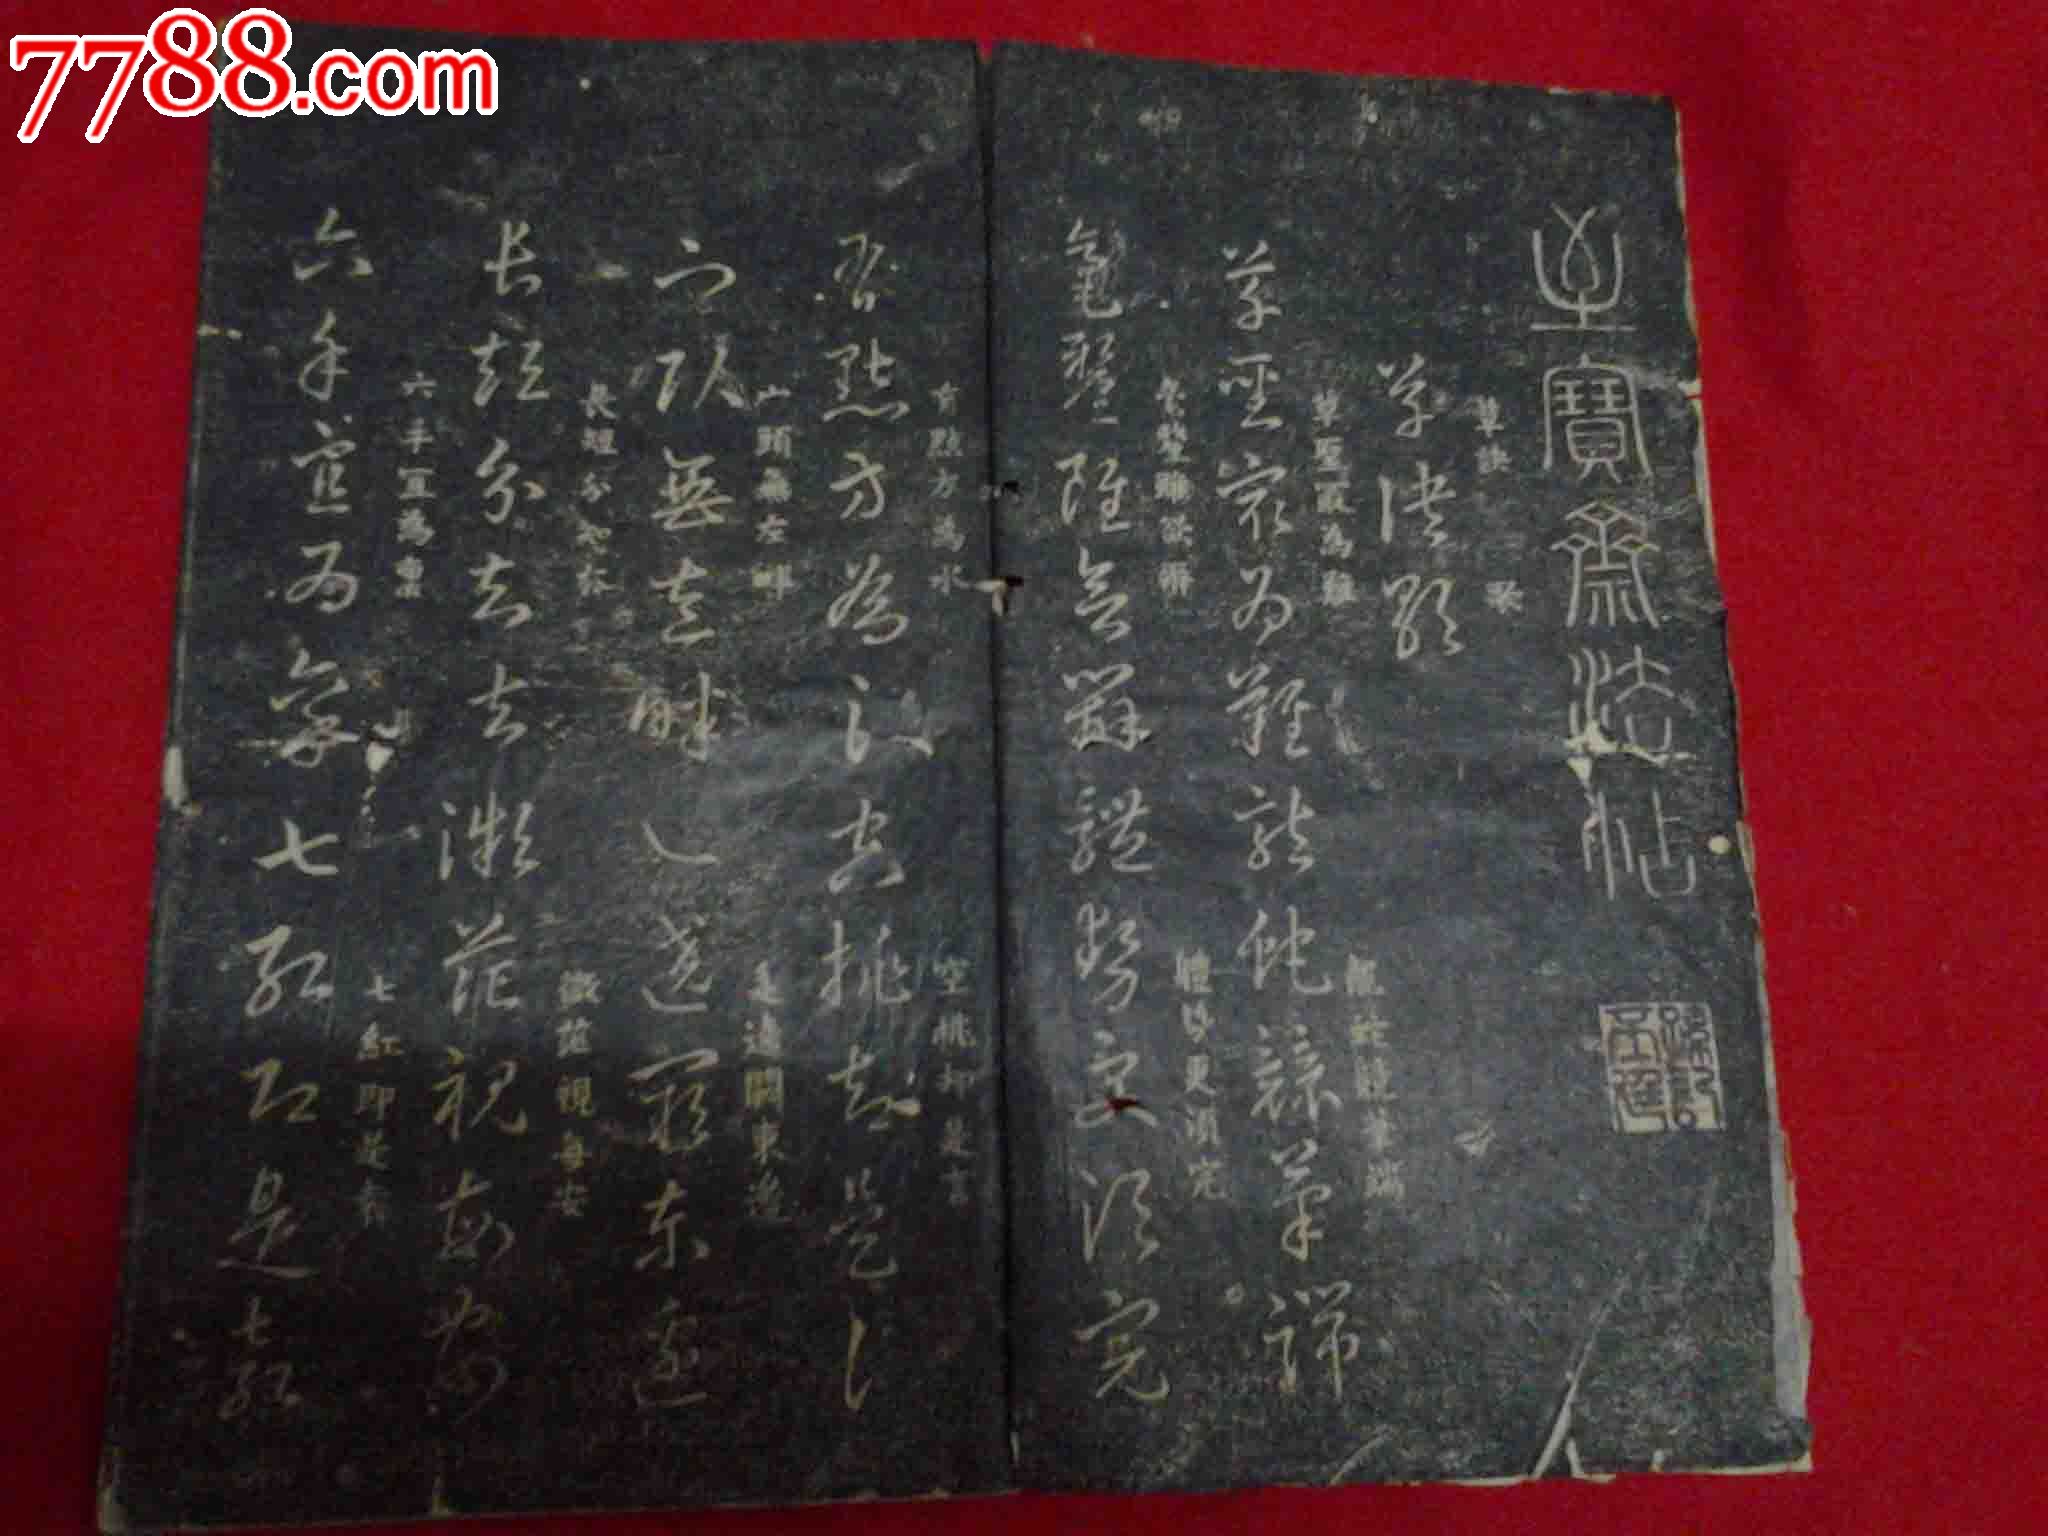 7788.com
至寶齋法帖
草訣歌
草訣歌
草聖最為難 龍蛇競筆端
草聖最為難龍蛇競筆端
毫釐雖欲辨 體勢更須完
毫釐雖欲辨體勢更須完
有點方為水 空挑却是言
有點方為水空挑却是言
宀頭無左畔 辶遶闕東邊
宀頭無左畔辶遶闕東邊
長短分知去 微茫視每安
長短分知去微茫視每安
六手宜為稟 七紅即是袁
六手宜為稟七紅即是袁